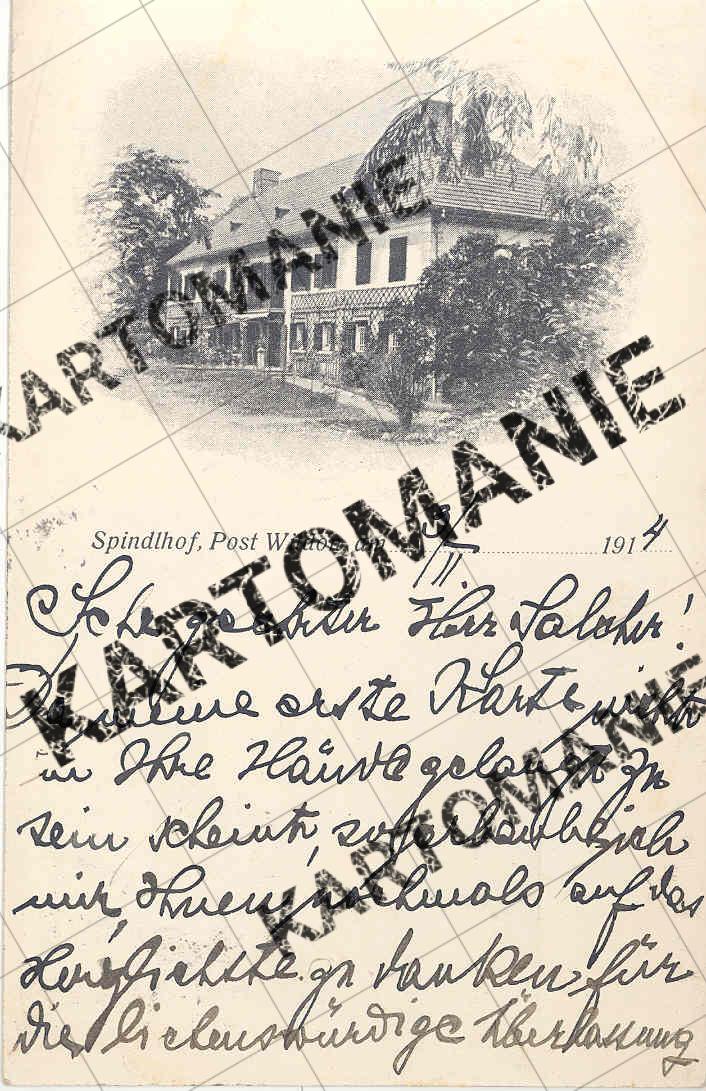 KARTOMANIE
KARTOMANIE
KARTOMANIE
Spindlhof, Post Wildon, am 3/II. 1914
Sehr geehrter Herr Salcher!
Da meine erste Karte nicht
in Ihre Hände gelangt zu
sein scheint, so erlaube ich
mir, Ihnen nochmals auf das
Herzlichste zu danken für
die liebenswürdige Überlassung